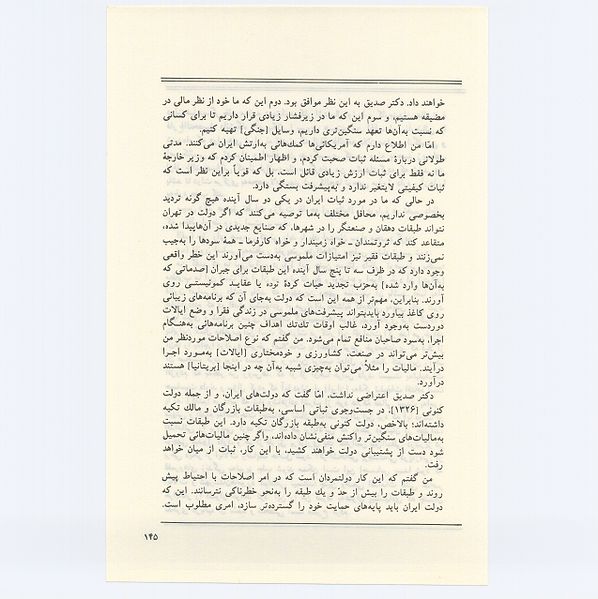 خواهند داد. دکتر صدیق به این نظر موافق بود. دوم این که ما خود از نظر مالی در
مضیقه هستیم، و سوم این که ما در زیرفشار زیادی قرار داریم تا برای کسانی
که نسبت به‌آن‌ها تعهد سنگین‌تری داریم، وسایل [جنگی] تهیه کنیم.
امّا من اطلاع دارم که آمریکائی‌ها کمك‌هائی به‌ارتش ایران می‌کنند. مدتی
طولانی دربارهٔ مسئله ثبات صحبت کردم، و اظهار اطمینان کردم که وزیر خارجهٔ
ما نه فقط برای ثبات ارزش زیادی قائل است، بل که قویاً براین نظر است که
ثبات کیفیتی لایتغیر ندارد و به‌پیشرفت بستگی دارد.
در حالی که ما در مورد ثبات ایران در یکی دو سال آینده هیچ گونه تردید
بخصوصی نداریم، محافل مختلف به‌ما توصیه می‌کنند که اگر دولت در تهران
نتواند طبقات دهقان و صنعتگر را در شهرها، که صنایع جدیدی در آن‌هاپیدا شده،
متقاعد کند که ثروتمندان ـ خواه زمیندار و خواه کارفرما ـ همهٔ سودها را به‌جیب
نمی‌زنند و طبقات فقیر نیز امتیازات ملموسی به‌دست می‌آورند این خطر واقعی
وجود دارد که در ظرف سه تا پنج سال آینده این طبقات برای جبران [صدماتی که
به‌آن‌ها وارد شده] به‌حزب تجدید حیات کردهٔ توده یا عقایـد کمونیستـی روی
آورند. بنابراین، مهم‌تر از همه این است که دولت به‌جای آن که برنامه‌های زیبائی
روی کاغذ بیاورد بایدبتواند پیشرفت‌های ملموسی در زندگی فقرا و وضع ایالات
دوردست به‌وجود آورد. غالب اوقات تك‌تك اهداف چنین برنامه‌هائی به‌هنگـام
اجرا، به‌سود صاحبان منافع تمام می‌شود. من گفتم که نوع اصلاحات موردنظر من
بیش‌تر می‌تواند در صنعت، کشاورزی و خودمختاری [ایالات] به‌مـورد اجـرا
درآیند. مالیات را مثلاً می‌توان به‌چیزی شبیه به‌آن چه در اینجا [بریتانیا] هستند
درآورد.
دکتر صدیق اعتراضی نداشت. امّا گفت که دولت‌های ایران، و از جمله دولت
کنونی [۱۳۲۶]، در جست‌وجوی ثباتی اساسی، به‌طبقات بازرگان و مالك تکیه
داشته‌اند؛ بالاخص، دولت کنونی به‌طبقه بازرگان تکیه دارد. این طبقات نسبت
به‌مالیات‌های سنگین‌تر واکنش منفی‌نشان داده‌اند، واگر چنین مالیات‌هائی تحمیل
شود دست از پشتیبانی دولت خواهند کشید، با این کار، ثبات از میان خواهد
رفت.
من گفتم که این کار دولتمردان است که در امر اصلاحات با احتیاط پیش
روند و طبقات را بیش از حدّ و یك طبقه را به‌نحو خطرناکی نترسانند. این که
دولت ایران باید پایه‌های حمایت خود را گسترده‌تر سازد، امری مطلوب است.
۱۴۵